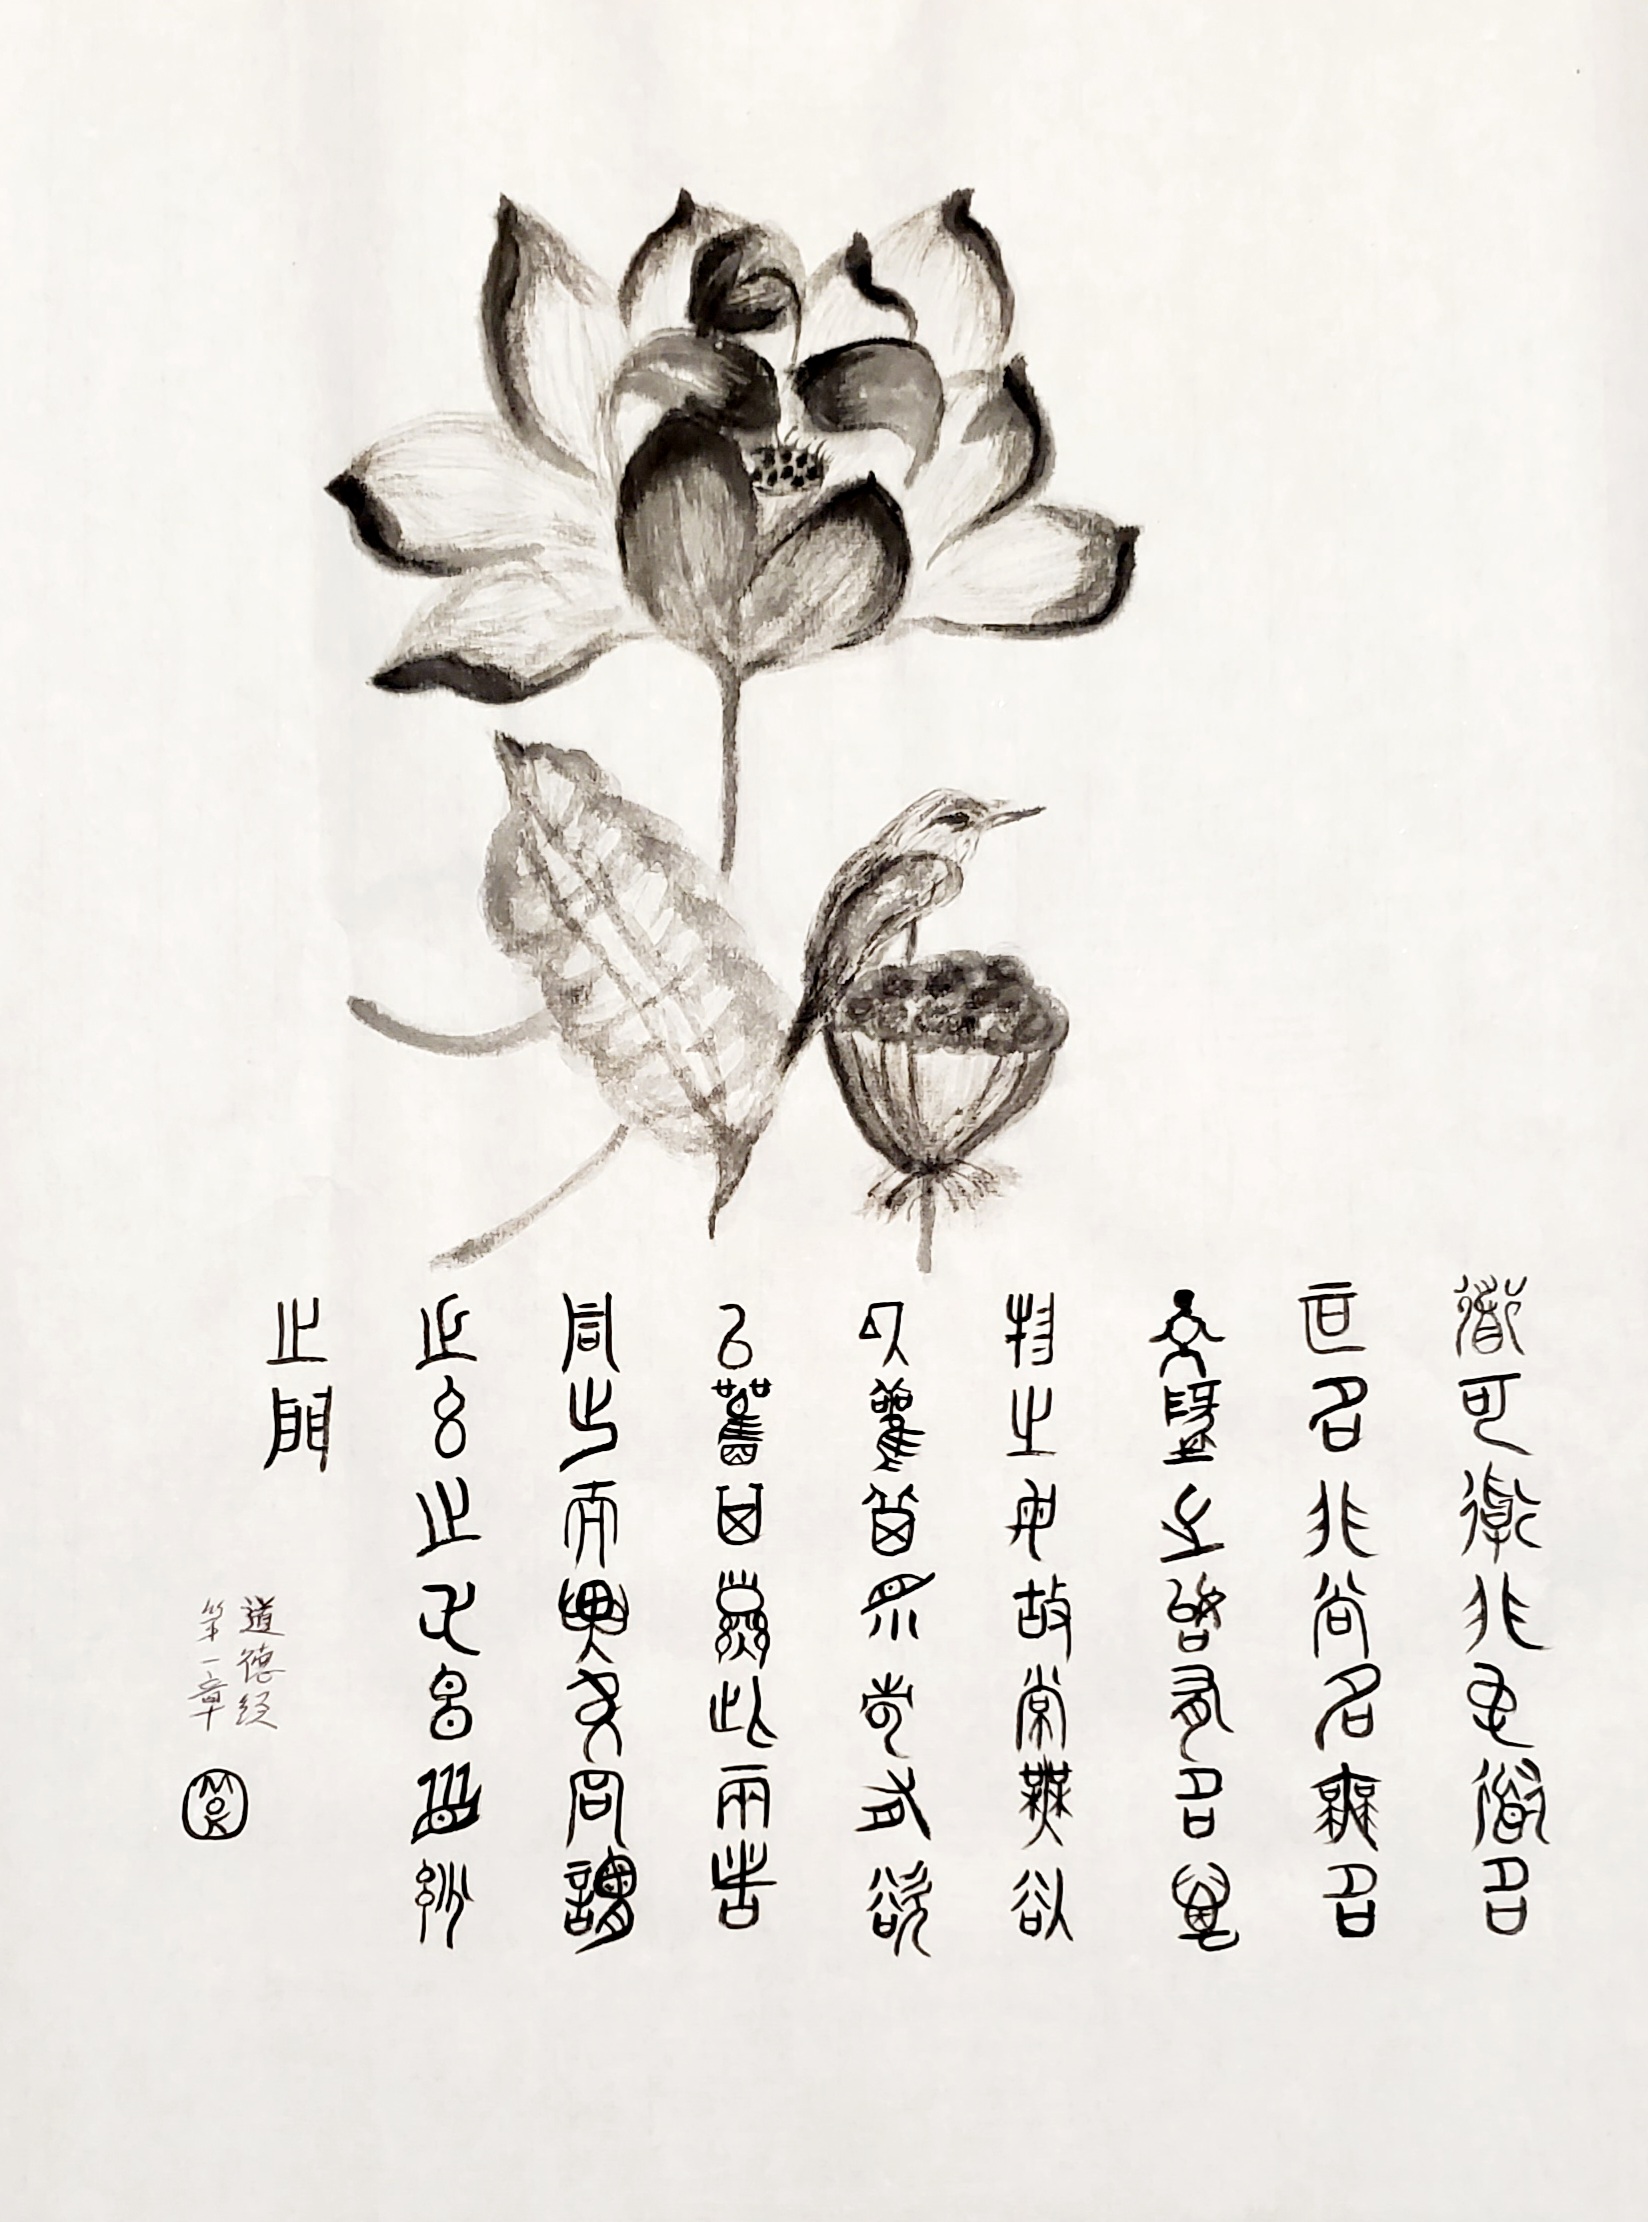 道可道非恆道名
可名非常名無名
天地之始有名萬
物之母故常無欲
以觀其眇常有欲
以觀其徼此兩者
同出而異名同謂
之玄之又玄眾妙
之門
道德经
第一章